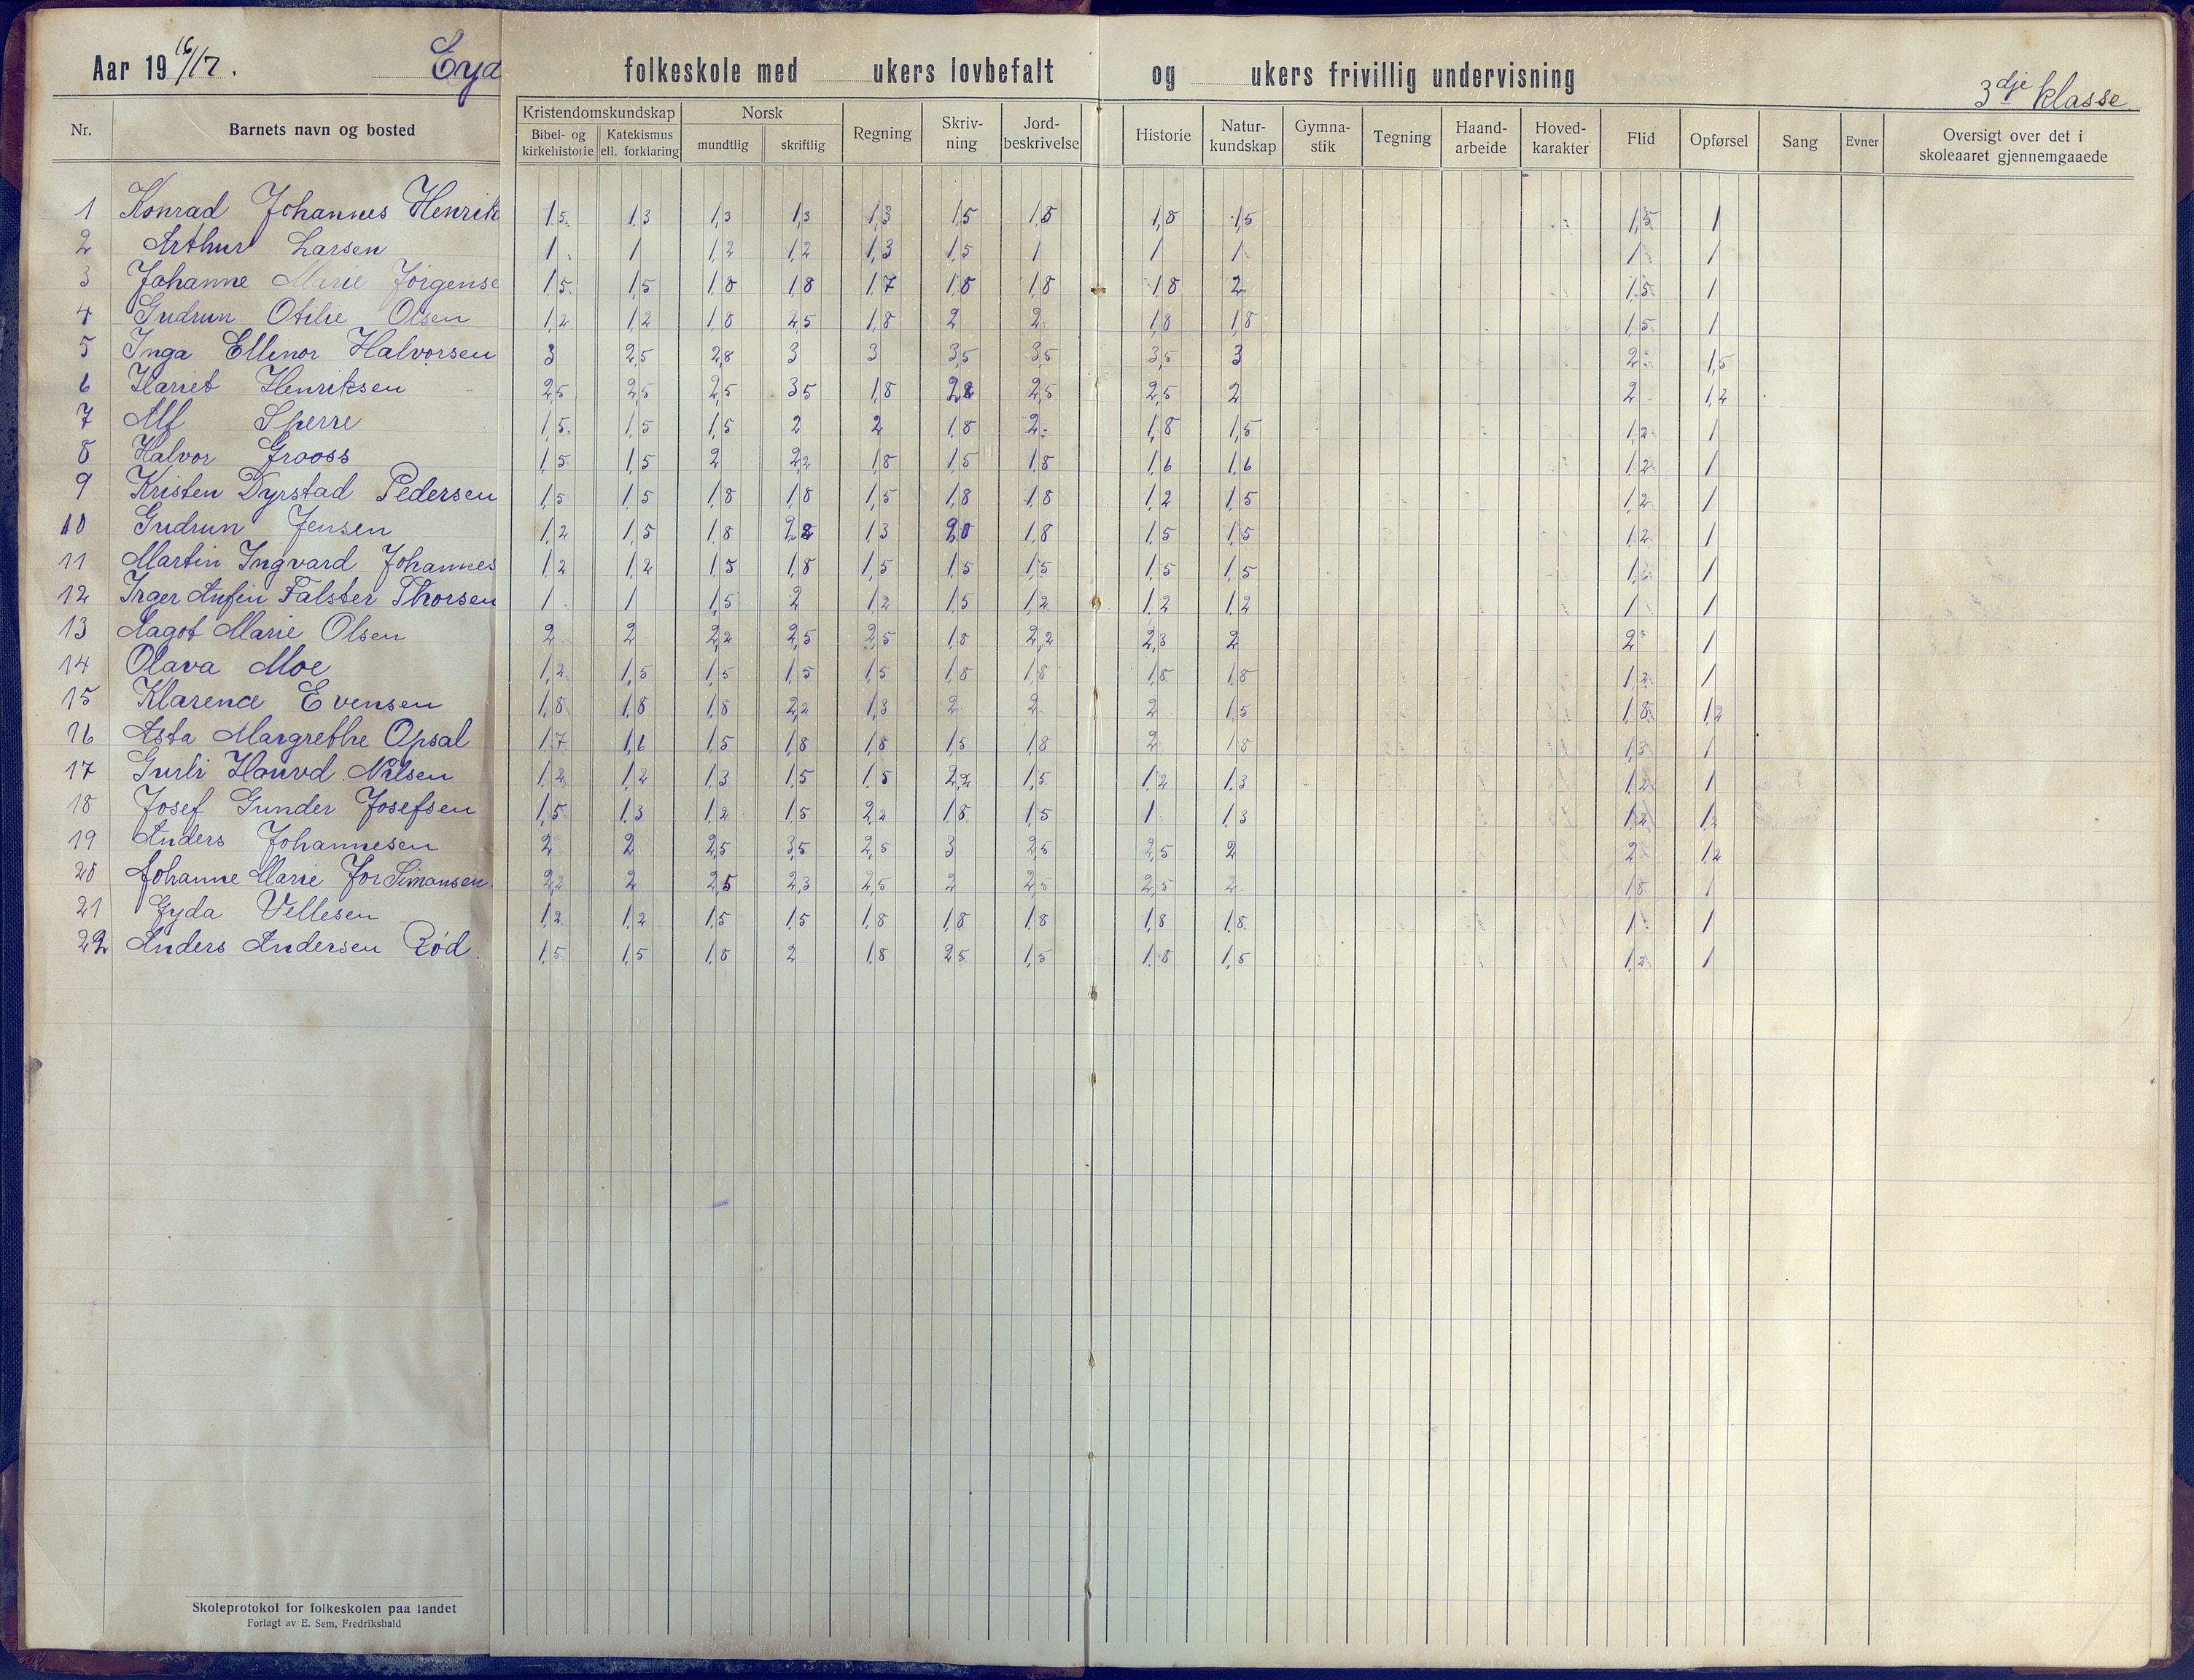 Aar 19 16/17. Eyd folkeskole med ukers lovbefalt og ukers frivillig undervisning 3dje klasse
Nr. Barnets navn og bosted Kristendomskundskap Bibel- og kirkehistorie Katekismus ell. forklaring Norsk mundtlig skriftlig Regning Skriv-ning Jord-beskrivelse Historie Natur-kundskap Gymna-stik Tegning Haand-arbeide Hoved-karakter Flid Opførsel Sang Evner Oversigt over det i skoleaaret gjennemgaaede
1 Konrad Johannes Henrik 1,5 1,3 1,3 1,3 1,3 1,5 1,8 1,8 1,5 1,5 1
2 Arthur Larsen 1 1 1,2 1,2 1,3 1,5 1 1 1 1 1
3 Johanne Marie Jörgense 1,5 1,5 1,8 1,8 1,7 1,8 1,8 1,8 2 1,5 1
4 Gudrun Otilie Olsen 1,2 1,2 1,8 2,5 1,8 2 2 1,8 1,8 1,5 1
5 Inga Ellinor Halvorsen 3 2,5 2,8 3 3 3,5 3,5 3,5 3 2 1,5
6 Harriet Henriksen 2,5 2,5 2,5 3,5 1,8 2,2 2,5 2,5 2 2 1,2
7 Alf Sperre 1,5 1,5 1,5 2 2 1,8 2 1,8 1,5 1,2 1
8 Halvor Grooss 1,5 1,5 2 2,2 1,8 1,5 1,8 1,6 1,6 1,2 1
9 Kristen Dyrstad Pedersen 1,5 1,5 1,8 1,8 1,5 1,8 1,8 1,2 1,5 1,2 1
10 Gudrun Jensen 1,2 1,5 1,8 2,2 1,3 2,0 1,8 1,5 1,5 1,2 1
11 Martin Ingvard Johannes 1,2 1,2 1,5 1,8 1,5 1,5 1,5 1,5 1,5 1, 1
12 Anfin Falster Thorsen 1 1 1,5 2 1,2 1,5 1,2 1,2 1,2 1 1
13 Aagot Marie Olsen 2 2 2,2 2,5 2,5 1,8 2,2 2,3 2 2 1
14 Olava Moe 1,2 1,5 1,5 1,5 1,5 1,8 1,8 1,8 1,8 1,2 1
15 Klarence Evensen 1,8 1,8 1,8 2,2 1,3 2 2 2 1,5 1,8 1,2
16 Asta Margrethe Opsal 1,7 1,6 1,5 1,8 1,8 1,5 1,8 2 1,8 1,3 1
17 Gurli Houvd. Nilsen 1,2 1,2 1,3 1,5 1,5 2,2 1,5 1,2 1,3 1,2 1
18 Josef Gunder Josefsen 1,5 1,3 1,2 1,5 2,2 1,8 1,5 1 1,3 1,2 1,2
19 Anders Johannesen 2 2 2,5 3,5 2,5 3 2,5 2,5 2 2 1,2
20 Johanne Marie Jor Simonsen 2,2 2 2,5 2,3 2,5 2 2,5 2,5 2 1,8 1
21 Gyda Vellesen 1,2 1,2 1,5 1,5 1,8 1,8 1,8 1,8 1,8 1 1
22 Anders Andersen Röd. 1,5 1,5 1,8 2 1,8 2,5 1,5 1,8 1,5 1,2 1
Skoleprotokol for folkeskolen paa landet
Forlagt av E. Sem, Fredrikshald